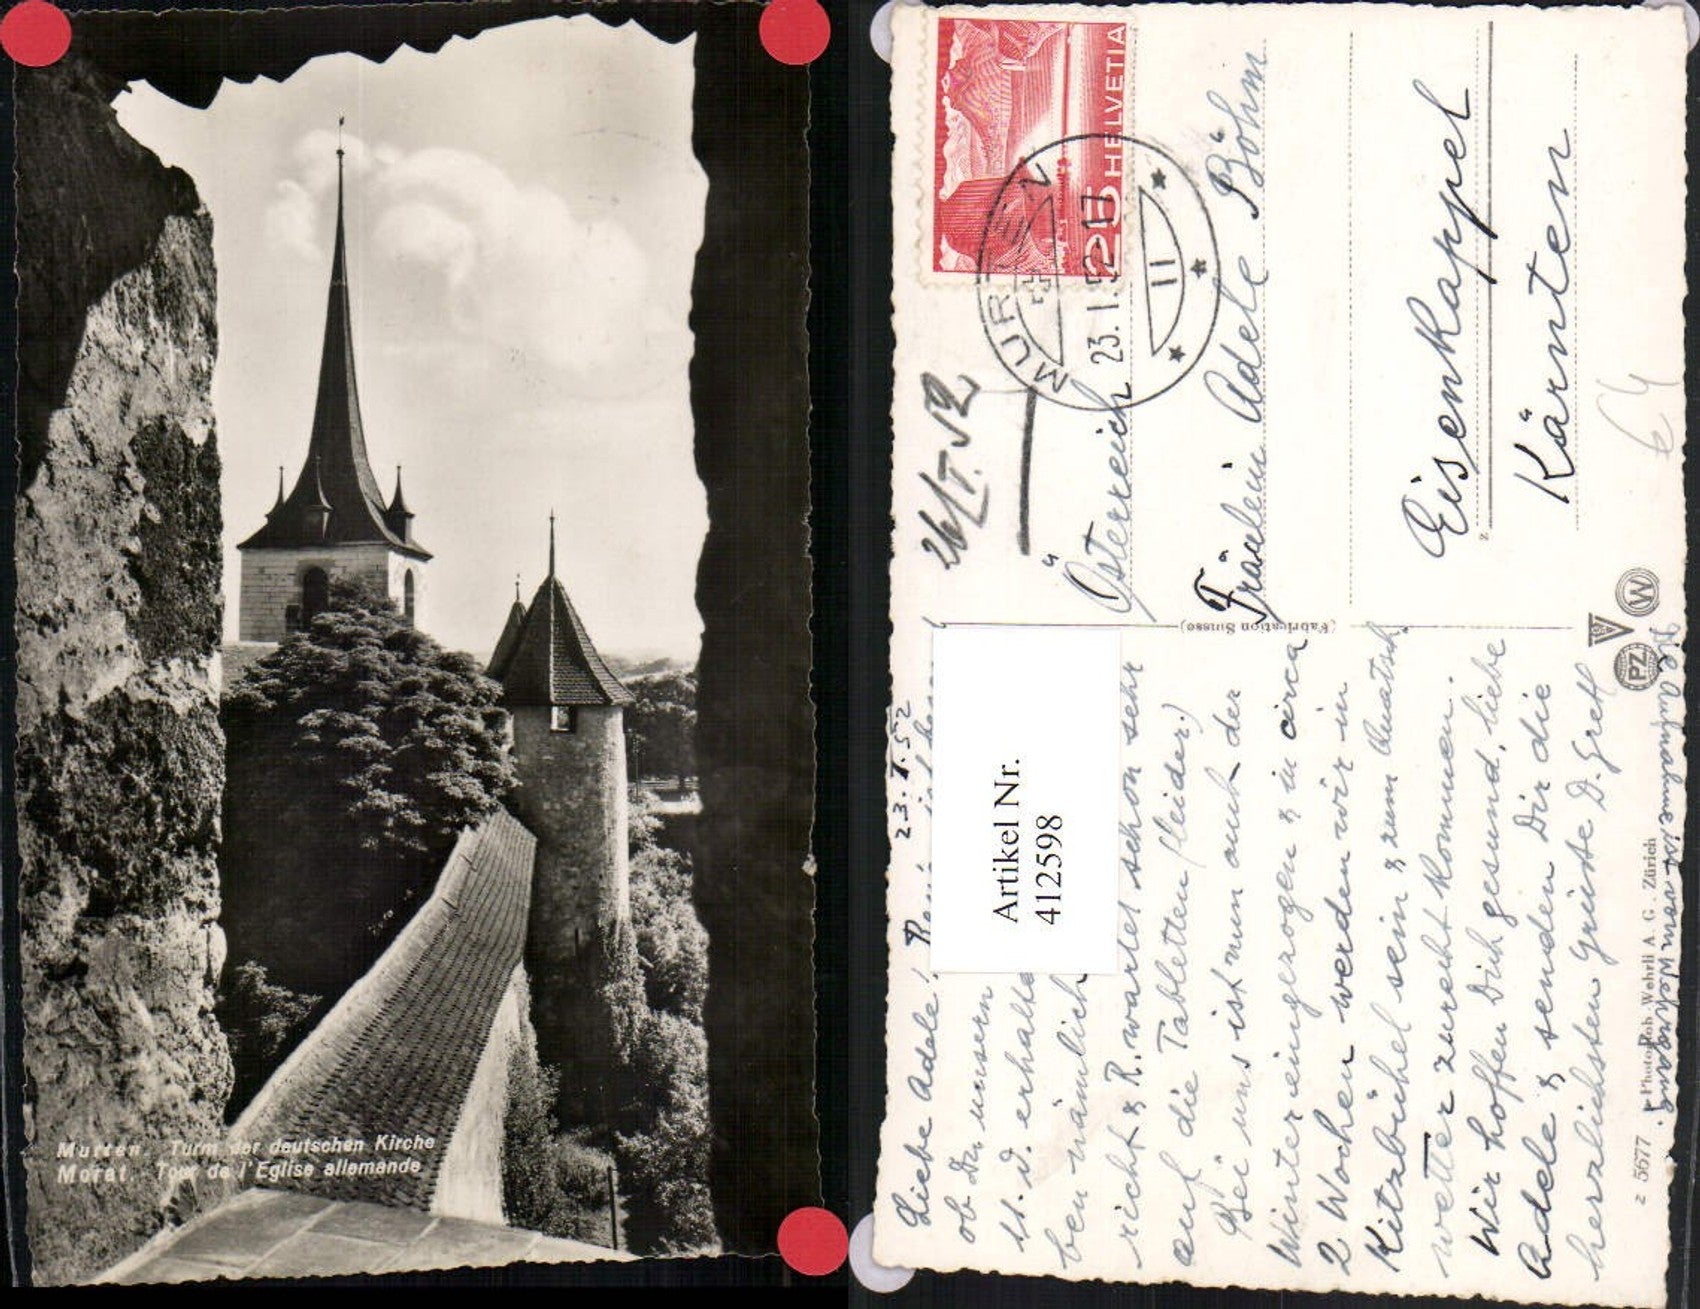 Murten. Turm der deutschen Kirche
Morat. Tour de l'Eglise allemande
HELVETIA
25
MURTEN
23.1.52-17
11
26/I.52
Österreich
Fräulein Adele Böhm
Eisenkappel
Kärnten
64
Z
(Fabrication Suisse)
V
W
PZ
Artikel Nr.
412598
23.I.52
Liebe Adele!
ob Du unsern
erhalte
ben nämlich
richt & R. wartet schon sehr
auf die Tabletten (leider.)
Bei uns ist nun auch der
Winter eingezogen & in circa
2 Wochen werden wir in
Kitzbühel sein & zum Quatsch
wetter zurecht kommen.
Wir hoffen Dich gesund, liebe
Adele & senden Dir die
herzlichsten Grüsse D. Gretl
Die Aufnahme ist vom Wehrgang.
Z 5677 Photoglob-Wehrli A. G. Zürich